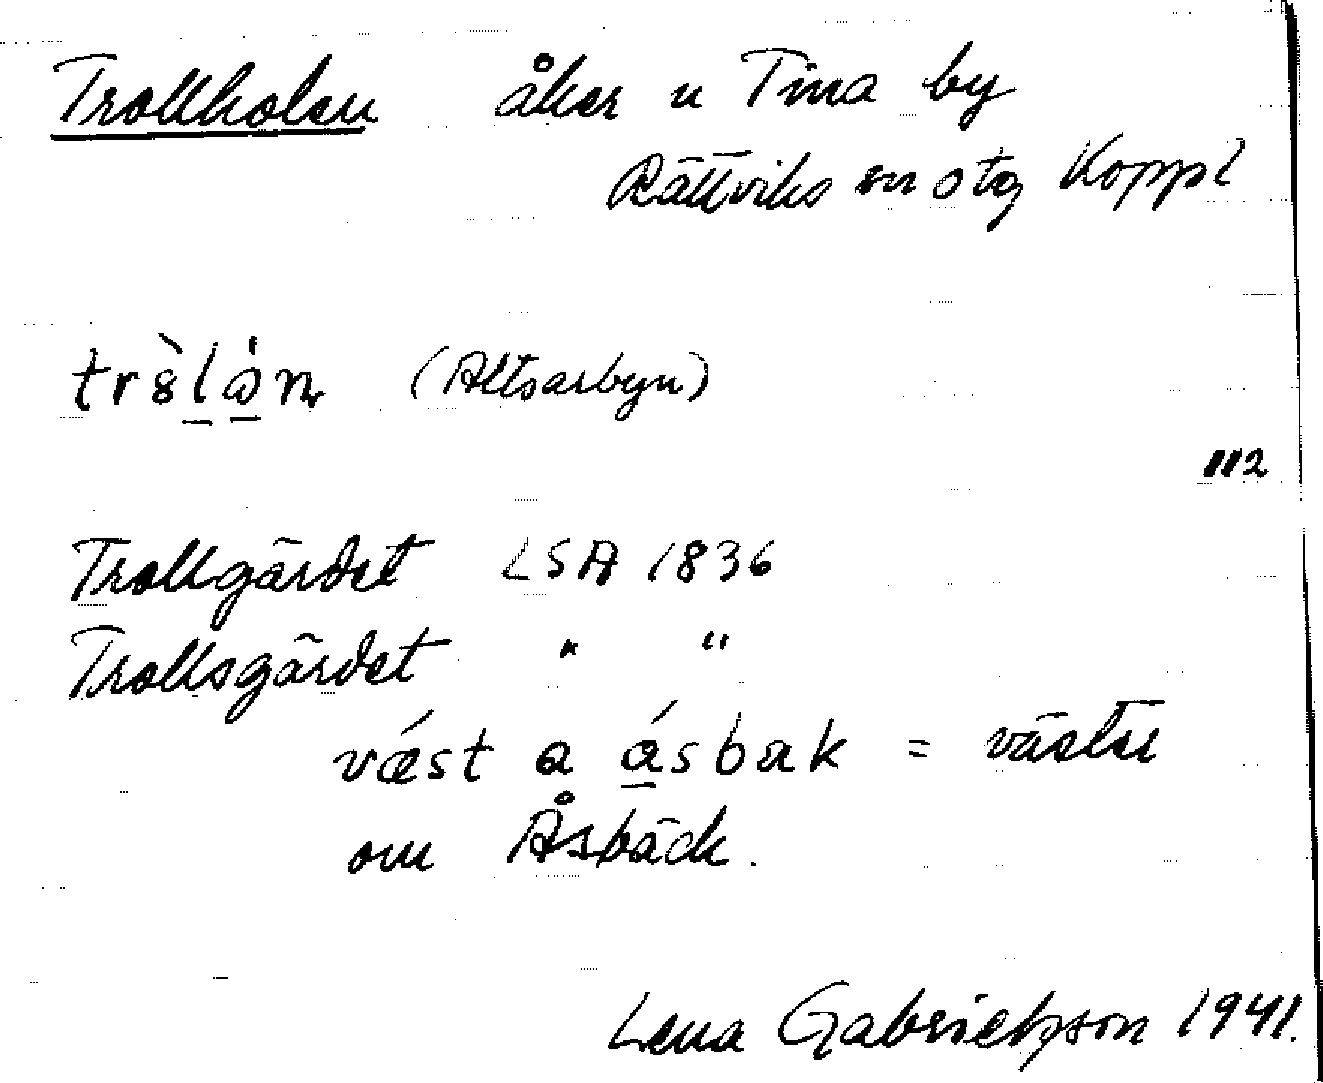 Trollholen åker u Tina by
Rättviks sn o tg Kopp l
(Altsarbyn)
112
Trollgärdet LSA 1836
Trollsgärdet " "
væst a åsbak = väster
om Åsbäck.
Lena Gabrielsson 1941.